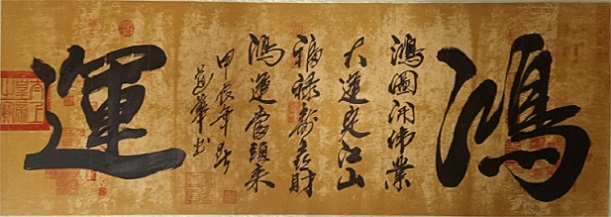 鴻
鴻圖開偉業
大運江山
福祿壽喜財
鴻運當頭來
甲辰年
華书
運